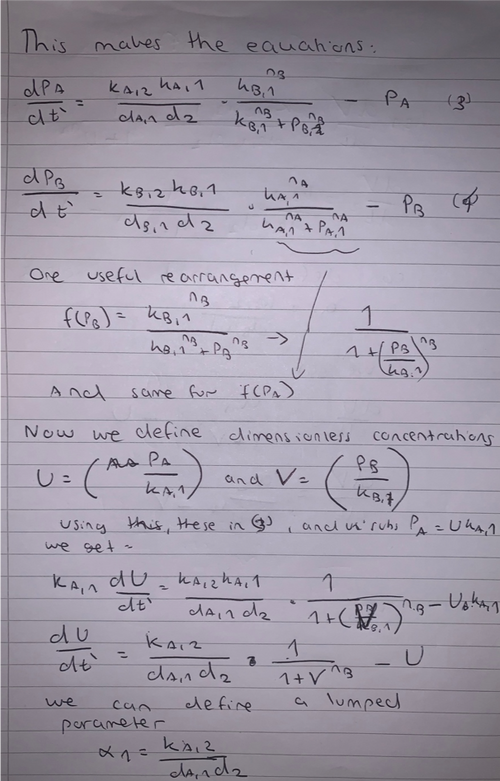 This makes the equations:
dPA/dt` = kA,2 kA,1 / dA,1 d2 · kB,1^nB / kB,1^nB + PB,1^nB − PA (3)
dPB/dt` = kB,2 kB,1 / dB,1 d2 · kA,1^nA / kA,1^nA + PA,1^nA − PB (4
One useful rearrangement
f(PB) = kB,1^nB / kB,1^nB + PB^nB → 1 / 1+(PB/kB,1)^nB
And same for f(PA)
Now we define dimensionless concentrations
U = (PA/kA,1) and V = (PB/kB,1)
using this, these in (3), and subs PA = UkA,1
we get -
kA,1 dU/dt` = kA,2 kA,1 / dA,1 d2 · 1 / 1+(V)^nB − U kA,1
dU/dt` = kA,2 / dA,1 d2 · 1 / 1+V^nB − U
we can define a lumped
parameter
α1 = kA,2 / dA,1 d2